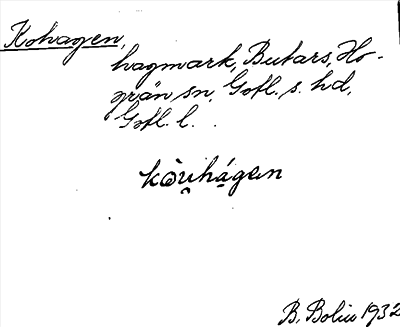 Kohagen,
hagmark, Butars, Ho-
grän sn, Gotl. s. hd,
Gotl. l.
B. Bolin 1932